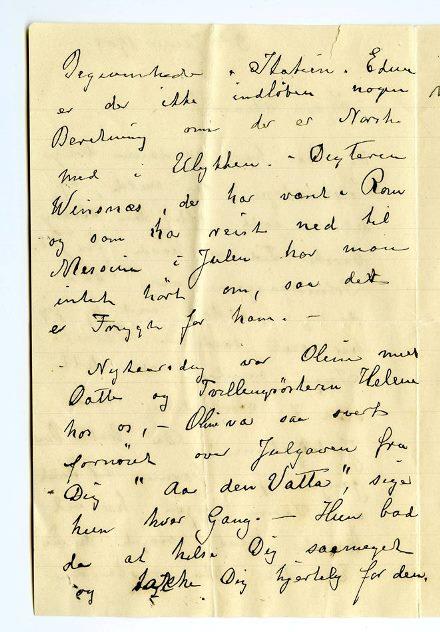 Begivenheder i Italien. Endnu
er der ikke indløben nogen
Beretning om der er Norske
med i Ulykken. – Digteren
Winsnæs, der har vært i Rom
og som har reist ned til
Messina i Julen har man
intet hørt om, saa det
er Frygt for ham. –
– Nytaarsdag var Oline med
Datte og Tvillingsøsteren Helene
hos os, – Oline var saa svert
fornöiet over Julgaven fra
Dig "Aa den Vatta", siger
hun hver Gang. – Hun bad
da at helse Dig saameget
og takke Dig hjertelig for den.